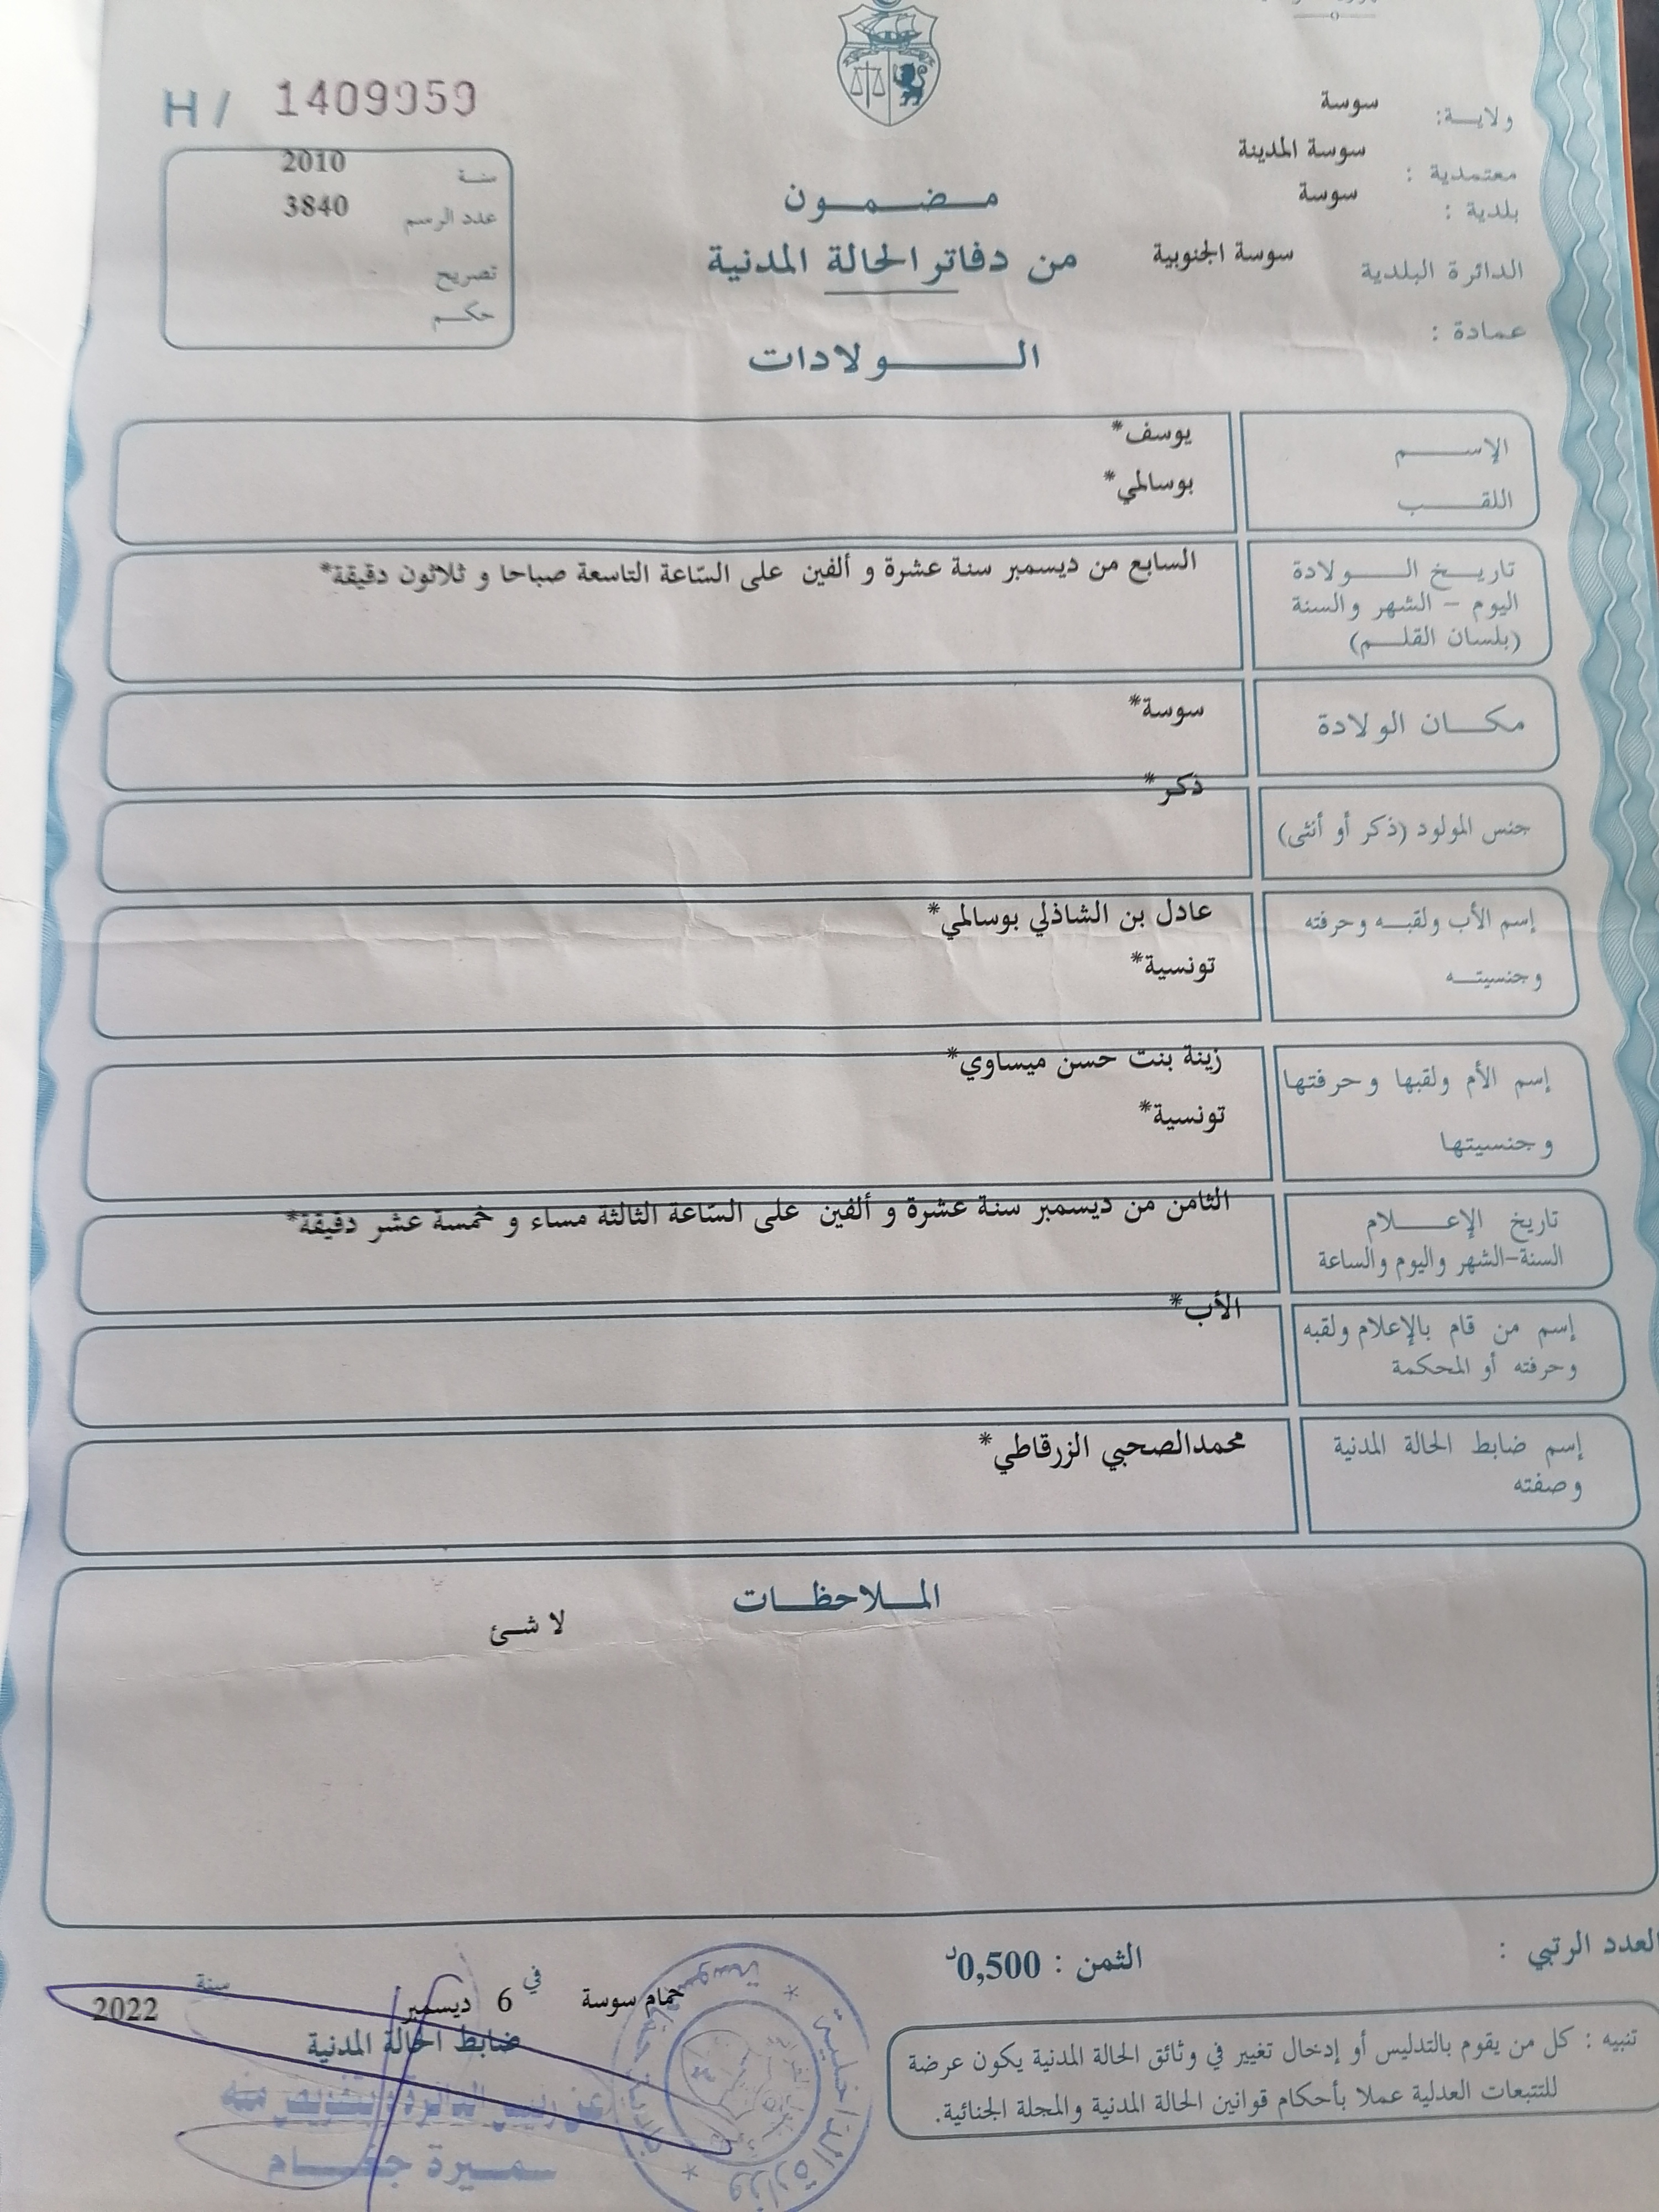 H / 1409959
ولاية: سوسة
معتمدية : سوسة المدينة
بلدية : سوسة
الدائرة البلدية سوسة الجنوبية
عمادة :
سنة 2010
عدد الرسم 3840
تصريح
حكم
مضمون
من دفاتر الحالة المدنية
الولادات
الإسم يوسف*
اللقب بوسالمي*
تاريخ الولادة السابع من ديسمبر سنة عشرة و ألفين على السّاعة التاسعة صباحا و ثلاثون دقيقة*
اليوم - الشهر والسنة
(بلسان القلم)
مكان الولادة سوسة*
جنس المولود (ذكر أو أنثى) ذكر*
إسم الأب ولقبه وحرفته عادل بن الشاذلي بوسالمي*
وجنسيته تونسية*
إسم الأم ولقبها وحرفتها زينة بنت حسن ميساوي*
وجنسيتها تونسية*
تاريخ الإعلام الثامن من ديسمبر سنة عشرة و ألفين على السّاعة الثالثة مساء و خمسة عشر دقيقة*
السنة-الشهر واليوم والساعة
إسم من قام بالإعلام ولقبه الأب*
وحرفته أو المحكمة
إسم ضابط الحالة المدنية محمدالصحبي الزرقاطي*
وصفته
الملاحظات
لا شئ
العدد الرتبي :
الثمن : 0,500د
حمام سوسة في 6 ديسمبر سنة 2022
ضابط الحالة المدنية
عن رئيس الدائرة بتفويض منه
سميرة جغام
وزارة الداخلية
تنبيه : كل من يقوم بالتدليس أو إدخال تغيير في وثائق الحالة المدنية يكون عرضة
للتتبعات العدلية عملا بأحكام قوانين الحالة المدنية والمجلة الجنائية.